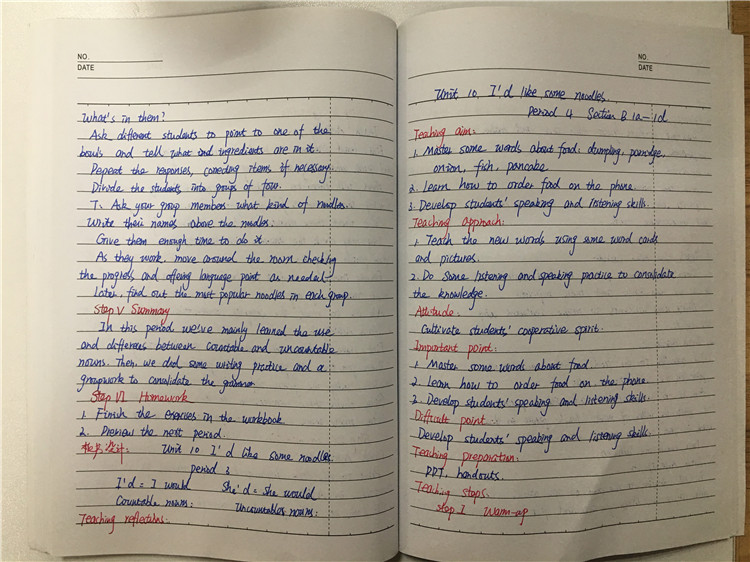 NO.
DATE
What's in them?
Ask different students to point to one of the
bowls and tell what ingredients are in it.
Repeat the responses, correcting items if necessary.
Divide the students into groups of four.
T: Ask your group members what kind of noodles.
Write their names above the noodles.
Give them enough time to do it.
As they work, move around the room checking
the progress and offering language point as needed.
Later, find out the most popular noodles in each group.
Step V Summary
In this period, we've mainly learned the use
and differences between countable and uncountable
nouns. Then, we did some writing practice and a
groupwork to consolidate the grammar
Step VI Homework
1. Finish the exercises in the workbook.
2. Preview the next period.
板书设计: Unit 10 I'd like some noodles.
period 3
I'd = I would She'd = She would
Countable nouns: Uncountables nouns:
Teaching reflections:
NO.
DATE
Unit 10. I'd like some noodles.
Period 4 Section B 1a-1d
Teaching aim:
1. Master some words about food: dumpling, porridge,
onion, fish, pancake
2. Learn how to order food on the phone.
3. Develop students' speaking and listening skills.
Teaching approach:
1. Teach the new words using some word cards
and pictures.
2. Do some listening and speaking practice to consolidate
the knowledge.
Attitude:
Cultivate students' cooperative spirit.
Important point:
1. Master some words about food.
2. Learn how to order food on the phone.
3. Develop students' speaking and listening skills.
Difficult point:
Develop students' speaking and listening skills.
Teaching preparation:
PPT, handouts.
Teaching steps
Step I Warm-up